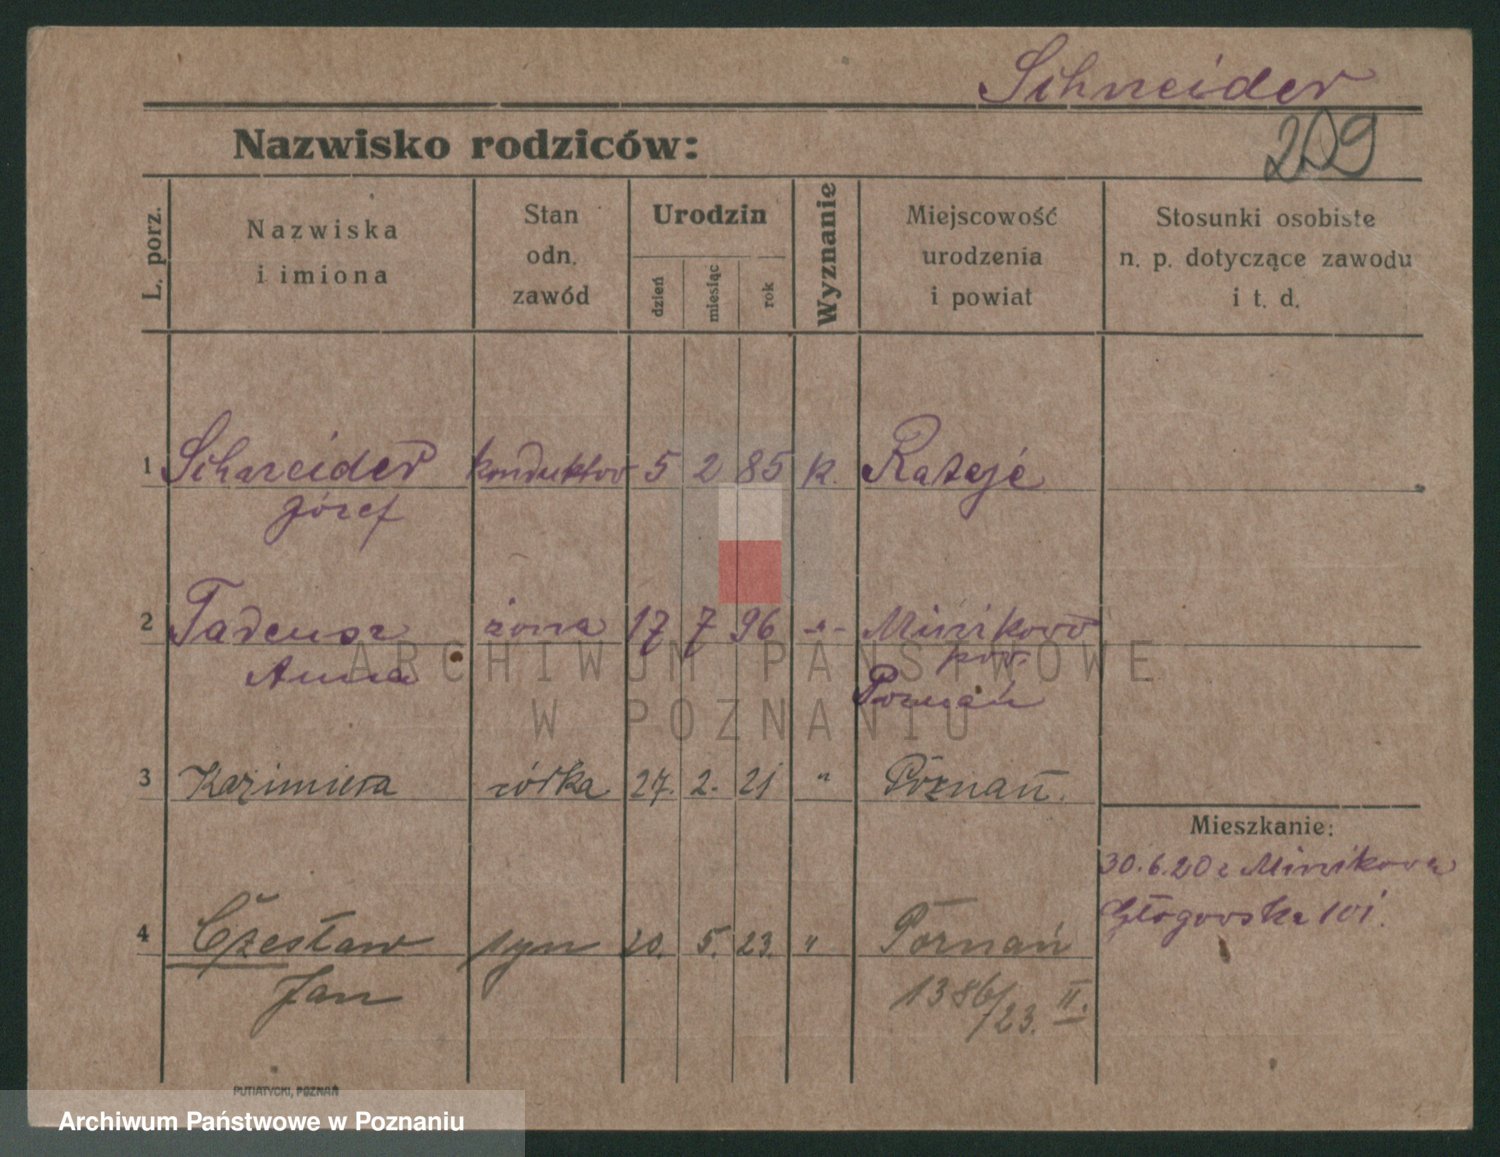 Schneider
209
Nazwisko rodziców:
L. porz.
Nazwiska
i imiona
Stan
odn.
zawód
Urodzin
dzień
miesiąc
rok
Wyznanie
Miejscowość
urodzenia
i powiat
Stosunki osobiste
n. p. dotyczące zawodu
i t. d.
1 Schneider konduktor 5 2 85 k. Rataje
Józef
2 Tadeusz żona 17 7 96 -"- Minikowo
Anna pow.
Poznań
ARCHIWUM PAŃSTWOWE
W POZNANIU
3 Kazimiera córka 27. 2. 21 " Poznań.
Mieszkanie:
30.6.20 z Minikowa
Głogowska 101.
4 Czesław syn 20. 5. 23. " Poznań
Jan 1386/23. II.
PUTIATYCKI, POZNAŃ
Archiwum Państwowe w Poznaniu